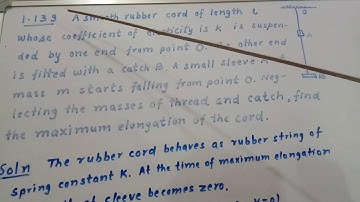 1.139 A smooth rubber cord of length l
whose coefficient of elasticity is k is suspen-
ded by one end from point O. other end
is fitted with a catch B. A small sleeve A
mass m starts falling from point O. Neg-
lecting the masses of thread and catch, find
the maximum elongation of the cord.
Soln The rubber cord behaves as rubber string of
spring constant K. At the time of maximum elongation
of sleeve becomes zero.
A
B